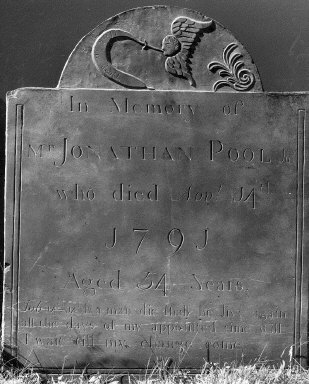 In Memory of
Mr JONATHAN POOL Jr
who died 14th
1791
Aged 54 Years.
a man die shall he live again
all the days of my appointed time will
I wait till my change come